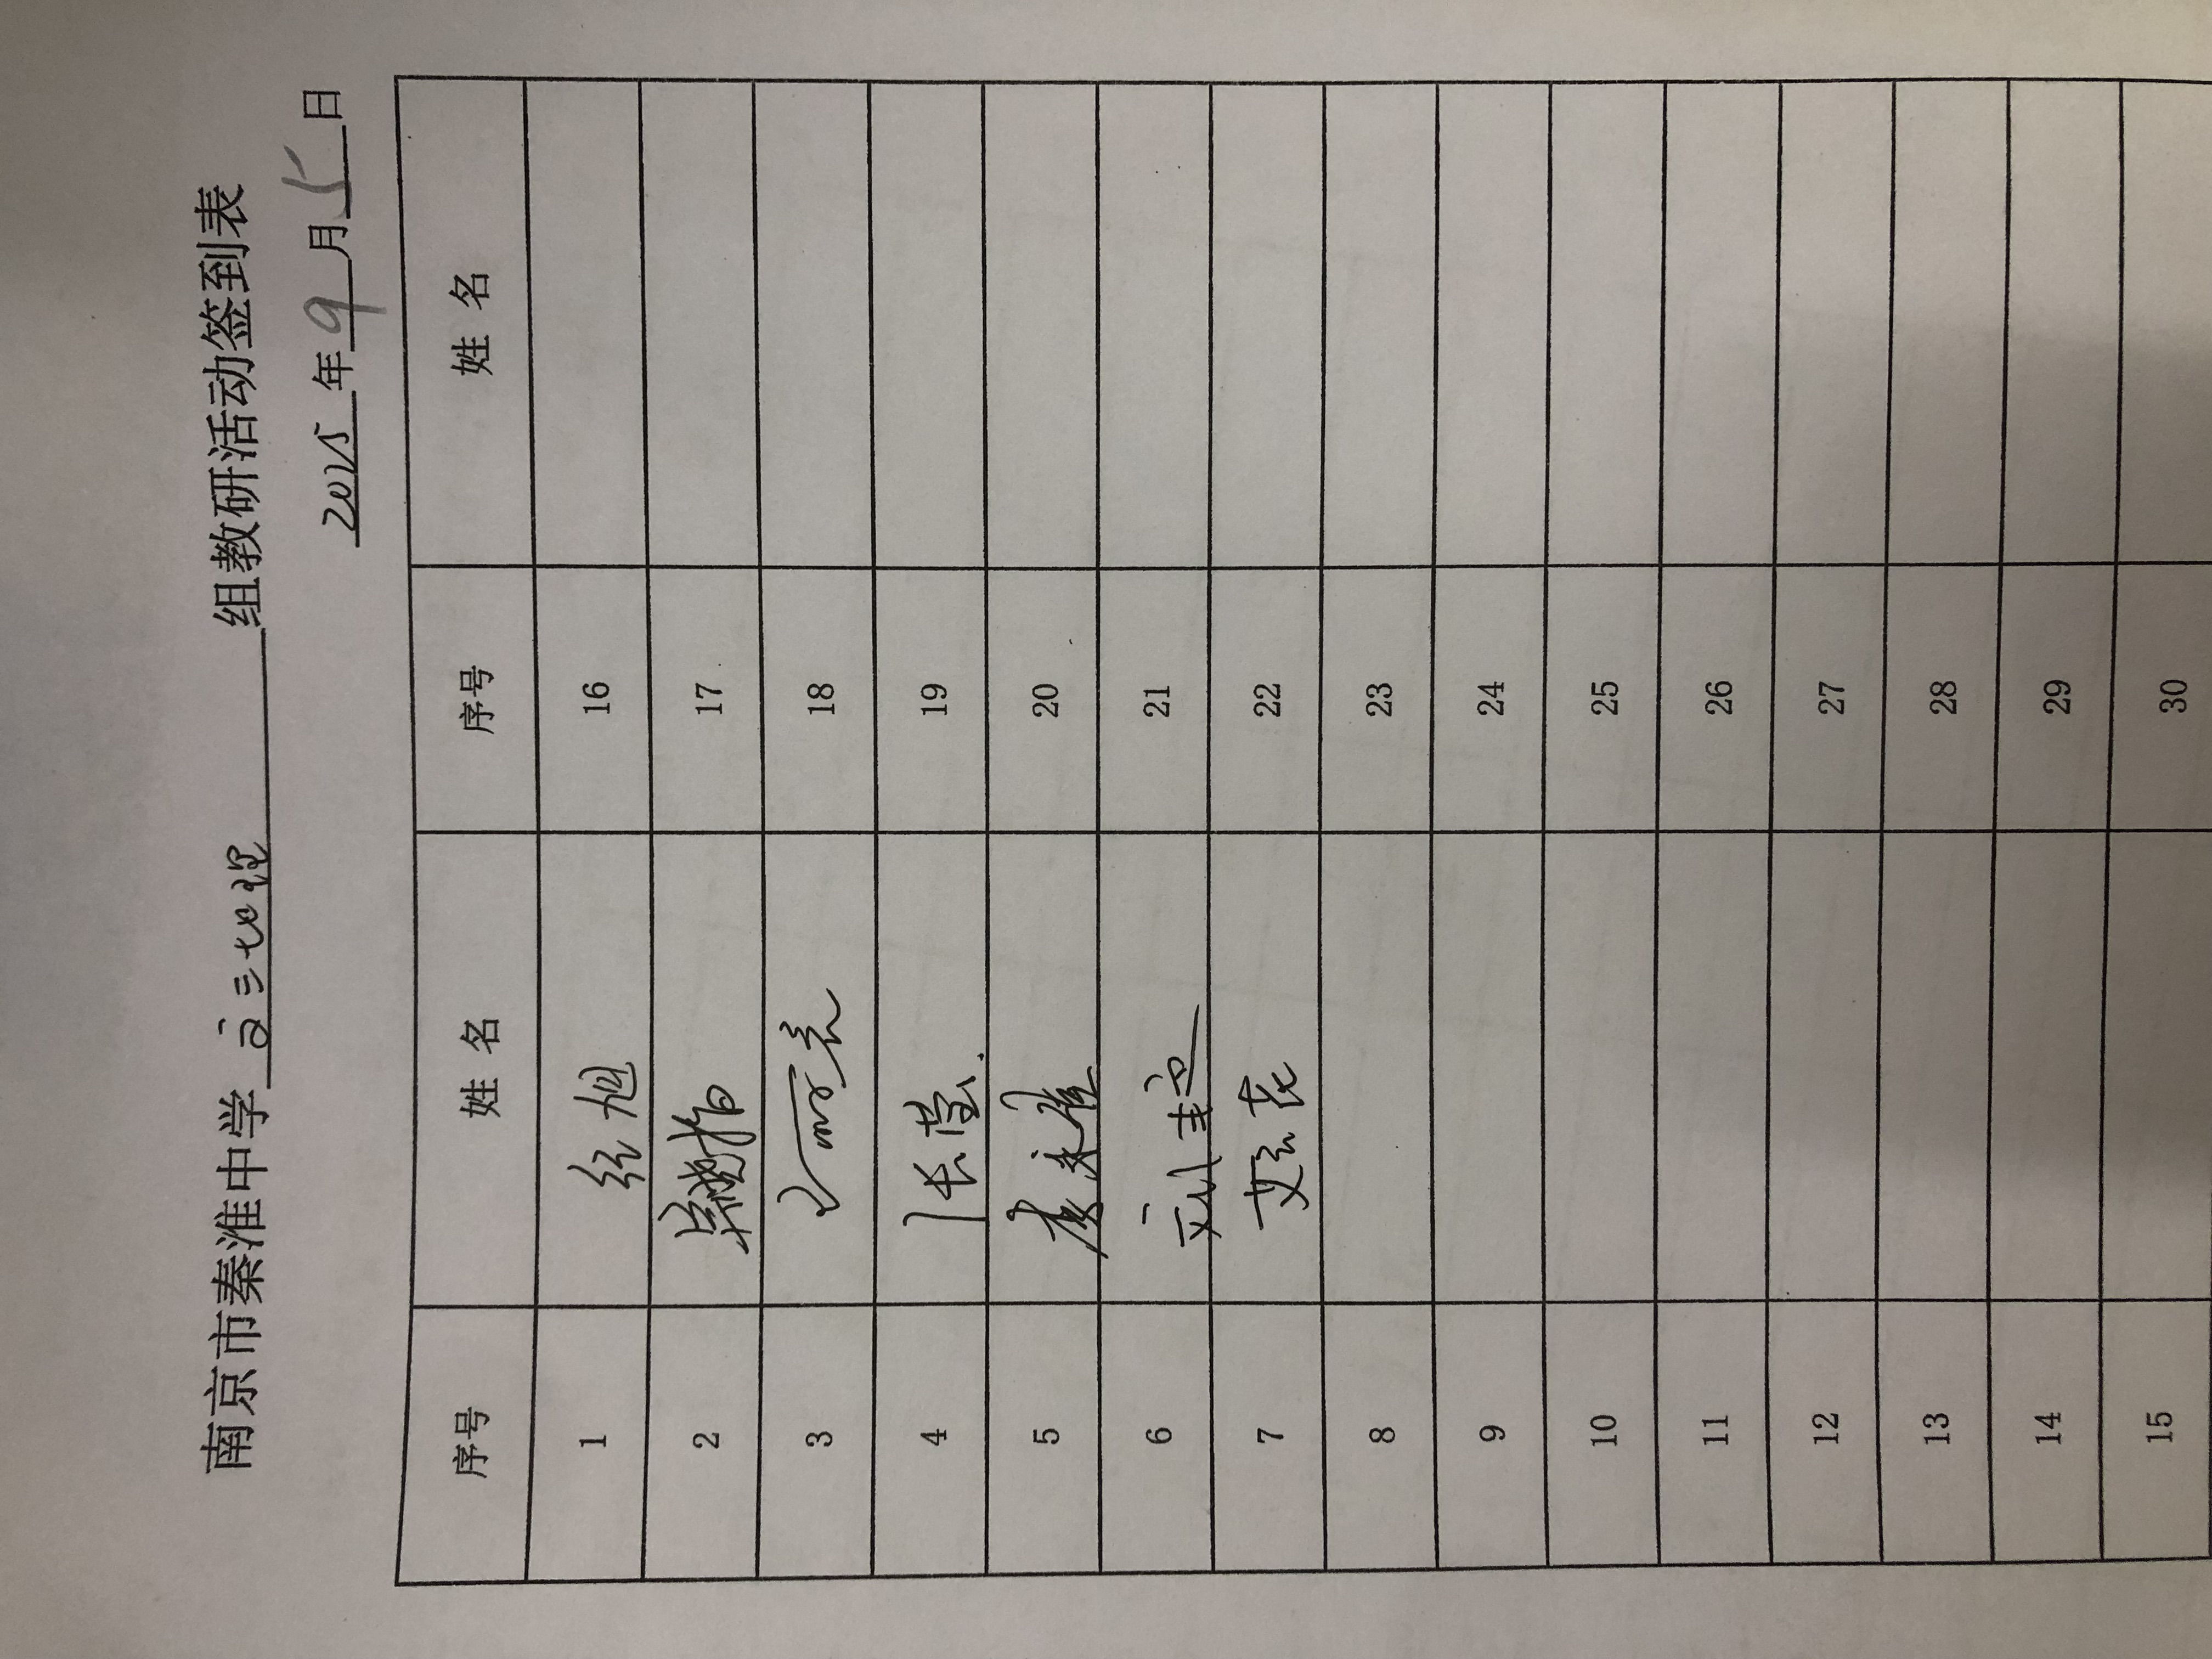 南京市秦淮中学 高三地理 组教研活动签到表
2025 年 9 月 5 日
序号 姓 名 序号 姓 名
1 16
2 17
3 18
4 张莹 19
5 20
6 21
7 22
8 23
9 24
10 25
11 26
12 27
13 28
14 29
15 30